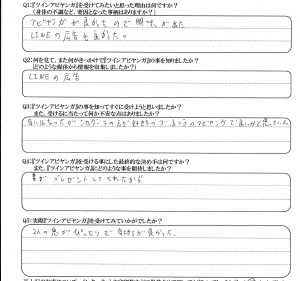 Q1:『ツインアビヤンガ』を受けてみたいと思った理由は何ですか?
(身体の不調など、要因となった事柄はありますか?)
アビヤンガが良かったので興味が出た
LINEの広告も良かった。
Q2:何を見て、また何がきっかけで『ツインアビヤンガ』の事を知りましたか?
どのような媒体から情報を収集しましたか?
LINEの広告
Q3:『ツインアビヤンガ』の事を知ってすぐに受けようと思いましたか?
また、受けるに当たって何か不安な点はありましたか?
気にはなったが
Q4:『ツインアビヤンガ』を受ける事にした最終的な決め手は何ですか?
また、『ツインアビヤンガ』にどのような事を期待しましたか?
妻がプレゼントしてくれたから
Q5:実際『ツインアビヤンガ』を受けてみていかがでしたか?
2人の息がぴったりで気持ちが良かった。